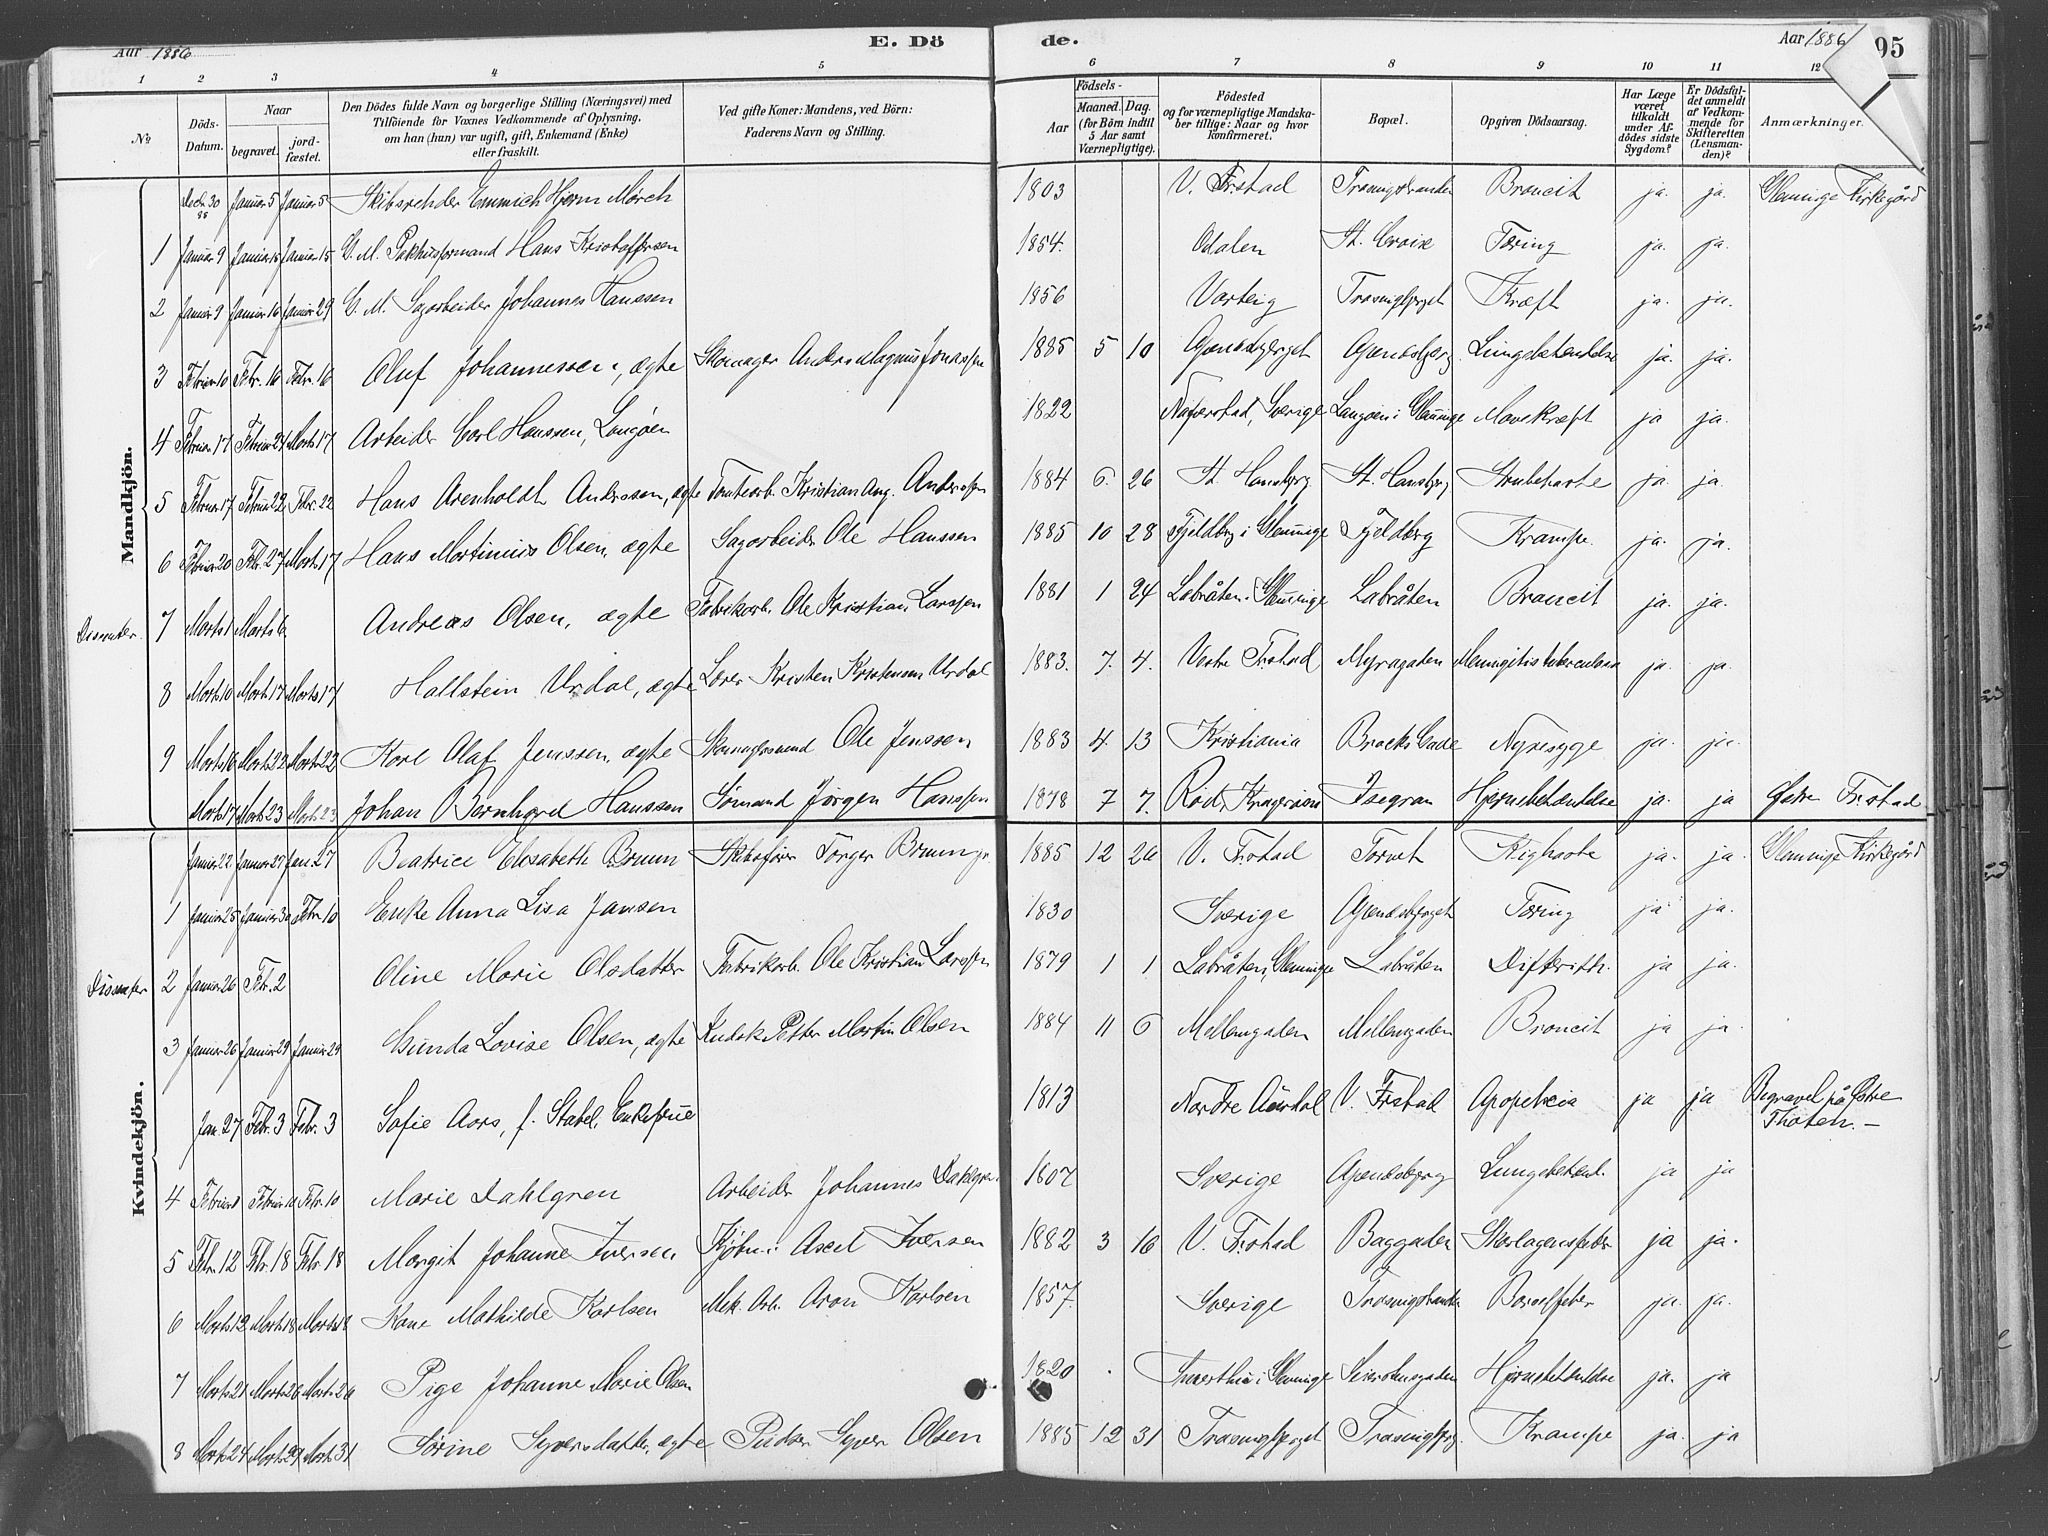 Aar 1886 E. Dö de. Aar 1886 95
1 2 3 4 5 6 7 8 9 10 11 12
№ Döds-Datum. Naar begravet. jord-fæstet. Den Dödes fulde Navn og borgerlige Stilling (Næringsvei) med Tilföiende for Voxnes Vedkommende af Oplysning, om han (hun) var ugift, gift, Enkemand (Enke) eller fraskilt. Ved gifte Koner: Mandens, ved Börn: Faderens Navn og Stilling. Födsels- Aar Maaned. Dag. (for Börn indtil 5 Aar samt Værnepligtige). Födested og for værnepligtige Mandskaber tillige: Naar og hvor konfirmeret. Bopæl. Opgiven Dödsaarsag. Har Læge været tilkaldt under Afdödes sidste Sygdom? Er Dödsfaldet anmeldt af Vedkommende for Skifteretten (Lensmanden)? Anmærkninger.
Mandkjön.
Decbr 30 85 Januar 5 Januar 5 Skibsrehder Emmich Hjerm Mörch 1803 V. Fr.stad Trosvigstranden Broncit ja. ja. Glemmige Kirkegård
1 Januar 9 Januar 15 Januar 15 G. M. Pakhusformand Hans Kristoffersen 1854. Odalen St. Croix Tæring ja. ja.
2 Januar 9 Januar 16 Januar 29 G. M. Sagarbeider Johannes Hanssen 1856 Varteig Trosvigberget Kræft ja. ja.
3 Februar 10 Febr. 16 Febr. 16 Oluf Johannessen, ægte Skomager Anders Magnus Jonassen 1885 5 10 Apenesbjerget Apenesbjerg Lungebetændelse ja. ja.
4 Februar 17 Februar 24 Marts 17 Arbeider Carl Hanssen, Langöen 1822 Naverstad, Sverige Langöen i Glemmige Mavekræft ja ja.
5 Februar 17 Februar 22 Febr. 22 Hans Arenholdt Anderssen, ægte Tomtearb. Kristian Aug. Anderssen 1884 6. 26 St. Hansbjerg St. Hansbjerg Strubehoste ja. ja.
6 Februar 20 Febr. 27 Marts 17 Hans Martinius Olsen, ægte Sagarbeider Ole Hanssen 1885 10 28 Fjeldberg i Glemmige Fjeldberg Krampe. ja. ja.
Dissenter. 7 Marts 1 Marts 6 Andreas Olsen, ægte Fabrikarb. Ole Kristian Larssen 1881 1 24 Labråten i Glemmige Labråten Broncit ja. ja.
8 Marts 10 Marts 17 Marts 17 Hallstein Urdal, ægte Lærer Kristen Kristensen Urdal 1883. 7. 4. Vestre Fr.stad Myragaden Meningitis tuberculosa ja. ja.
9 Marts 16 Marts 22 Marts 22 Karl Olaf Jenssen, ægte Skomagersvend Ole Jenssen 1883 4. 13 Kristiania Brochs Gade Nyresyge ja. ja.
Marts 17 Marts 23 Marts 23 Johan Bernhard Hanssen Sömand Jörgen Hanssen 1878 7 7. Röd, Kragerøen Isegran Hjernebetændelse ja. ja Östre Fr.stad
Kvindekjön.
Januar 22 Januar 27 Jan. 27 Beatrice Elisabeth Bruun Skibsfører Törger Bruun jr. 1885 12 26 V. Fr.stad Torvet Kighoste ja. ja. Glemmige Kirkegård
1 Januar 25 Januar 30 Febr. 10 Enke Anna Lisa Jansen 1830 Sverige Apenesbjerget Tæring ja ja.
Dissenter 2 Januar 26 Febr. 2 Oline Marie Olsdatter Fabrikarb. Ole Kristian Larssen 1879 1 1 Labråten, Glemmige Labråten Differith. ja ja.
3 Januar 26 Januar 29 Januar 29 Gunda Lovise Olsen, ægte Kudsk Petter Martin Olsen 1884 11 6 Mellemgaden Mellemgaden Broncit ja ja.
Jan. 27 Febr. 3 Febr. 3 Sofie Aars, f. Stabel, Enkefrue 1813 Nordre Aurdal V. Fr.stad Apoplexia ja ja Begravet på Østre Thoten. —
4 Februar Februar 10 Febr. 10 Marie Dahlgren Arbeider Johannes Dahlgren 1807 Sverige Apenesbjerg Lungebetænd. ja ja
5 Febr. 12 Febr. 18 Febr. 18 Margit Johanne Iversen Kjöbm. Axel Iversen 1882 3 16 V. Fr.stad Baggaden Skarlagensfeber ja ja.
6 Marts 12 Marts 18 Marts 18 Kone Mathilde Karlsen Mek. Arb. Aron Karlsen 1857. Sverige Trosvigstranden Barselfeber ja. ja.
7 Marts 21 Marts 26 Marts 26 Pige Johanne Marie Olsen 1820 i Glemmige Hjernebetændelse ja. ja
8 Marts 24 Marts 29 Marts 31 Sörine Syversdatter, ægte Pudser Syver Olsen 1885 12 31 Trosvigberget Trosvigbjerg. Krampe ja. ja